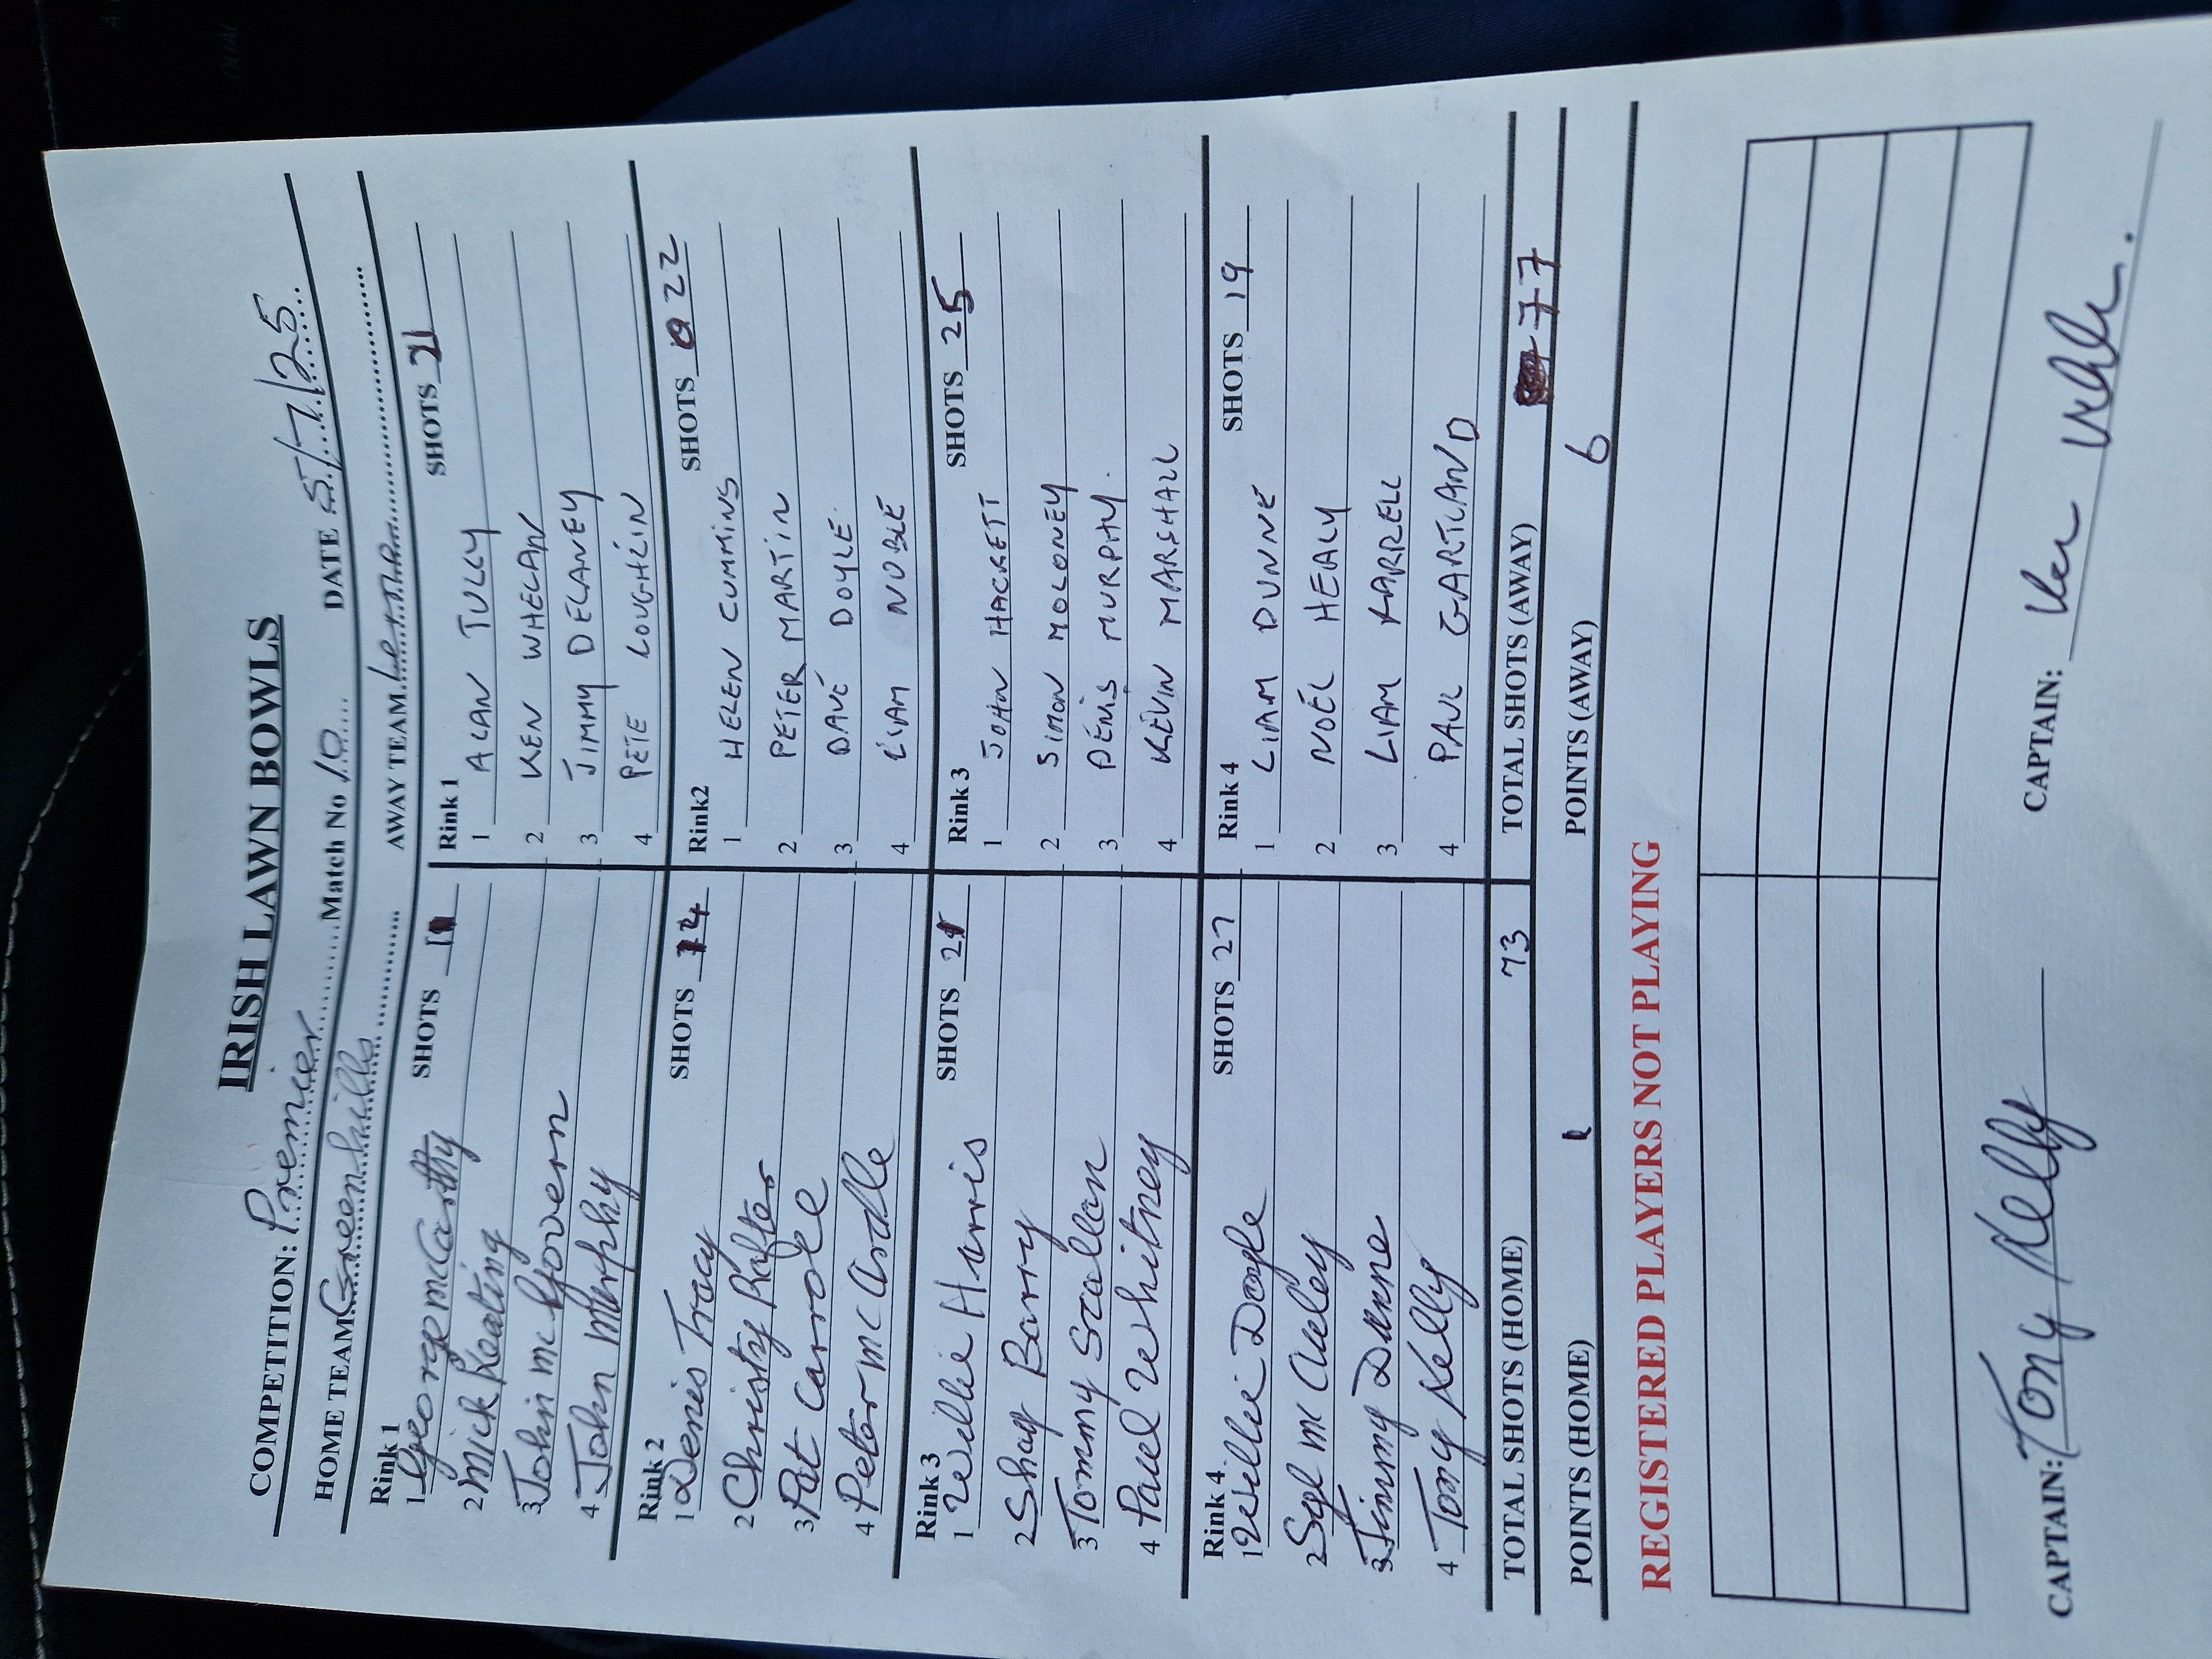 IRISH LAWN BOWLS
COMPETITION: Premier Match No 10 DATE 5/7/25
HOME TEAM Greenhills AWAY TEAM
Rink 1 SHOTS Rink 1 SHOTS 21
1 George mcCartty 1 ALAN TULLY
2 Mick Keating 2 KEN WHELAN
3 John mc Govern 3 JIMMY DELANEY
4 John Murphy 4 PETE LOUGHLIN
Rink 2 SHOTS 14 Rink2 SHOTS 22
1 Denis Tracy 1 HELEN CUMMINS
2 Christy Rafter 2 PETER MARTIN
3 Pat Carroll 3 DAVE DOYLE
4 Peter mc Ardle 4 LIAM NOBLE
Rink 3 SHOTS 21 Rink 3 SHOTS 25
1 Willie Harris 1 JOHN HACKETT
2 Shay Barry 2 SIMON MOLONEY
3 Tommy Scallan 3 DENIS MURPHY.
4 Paul Whitney 4 KEVIN MARSHALL
Rink 4 SHOTS 27 Rink 4 SHOTS 19
1 Willie Doyle 1 LIAM DUNNE
2 Syl mc Auley 2 NOEL HEALY
3 Jimmy Dunne 3 LIAM FARRELL
4 Tony Kelly 4 PAUL GARTLAND
TOTAL SHOTS (HOME) 73 TOTAL SHOTS (AWAY) 77
POINTS (HOME) 1 POINTS (AWAY) 6
REGISTERED PLAYERS NOT PLAYING
CAPTAIN: Tony Kelly CAPTAIN: Ken